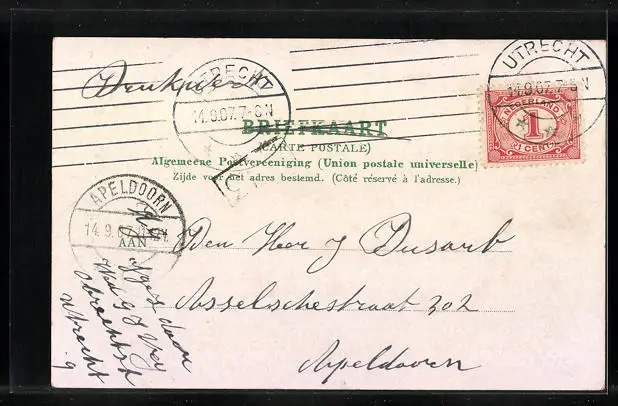 Drukwerk
UTRECHT
14.9.07.7-8N
UTRECHT
14.9.07.7-8N
NEDERLAND
1
1 CENT
BRIEFKAART
(CARTE POSTALE)
Algemeene Postvereeniging (Union postale universelle)
Zijde voor het adres bestemd. (Côté réservé à l'adresse.)
APELDOORN
14.9.07
AAN
Den Heer J Dusarb
Asselschestraat 202
Apeldoorn
door
Utrecht